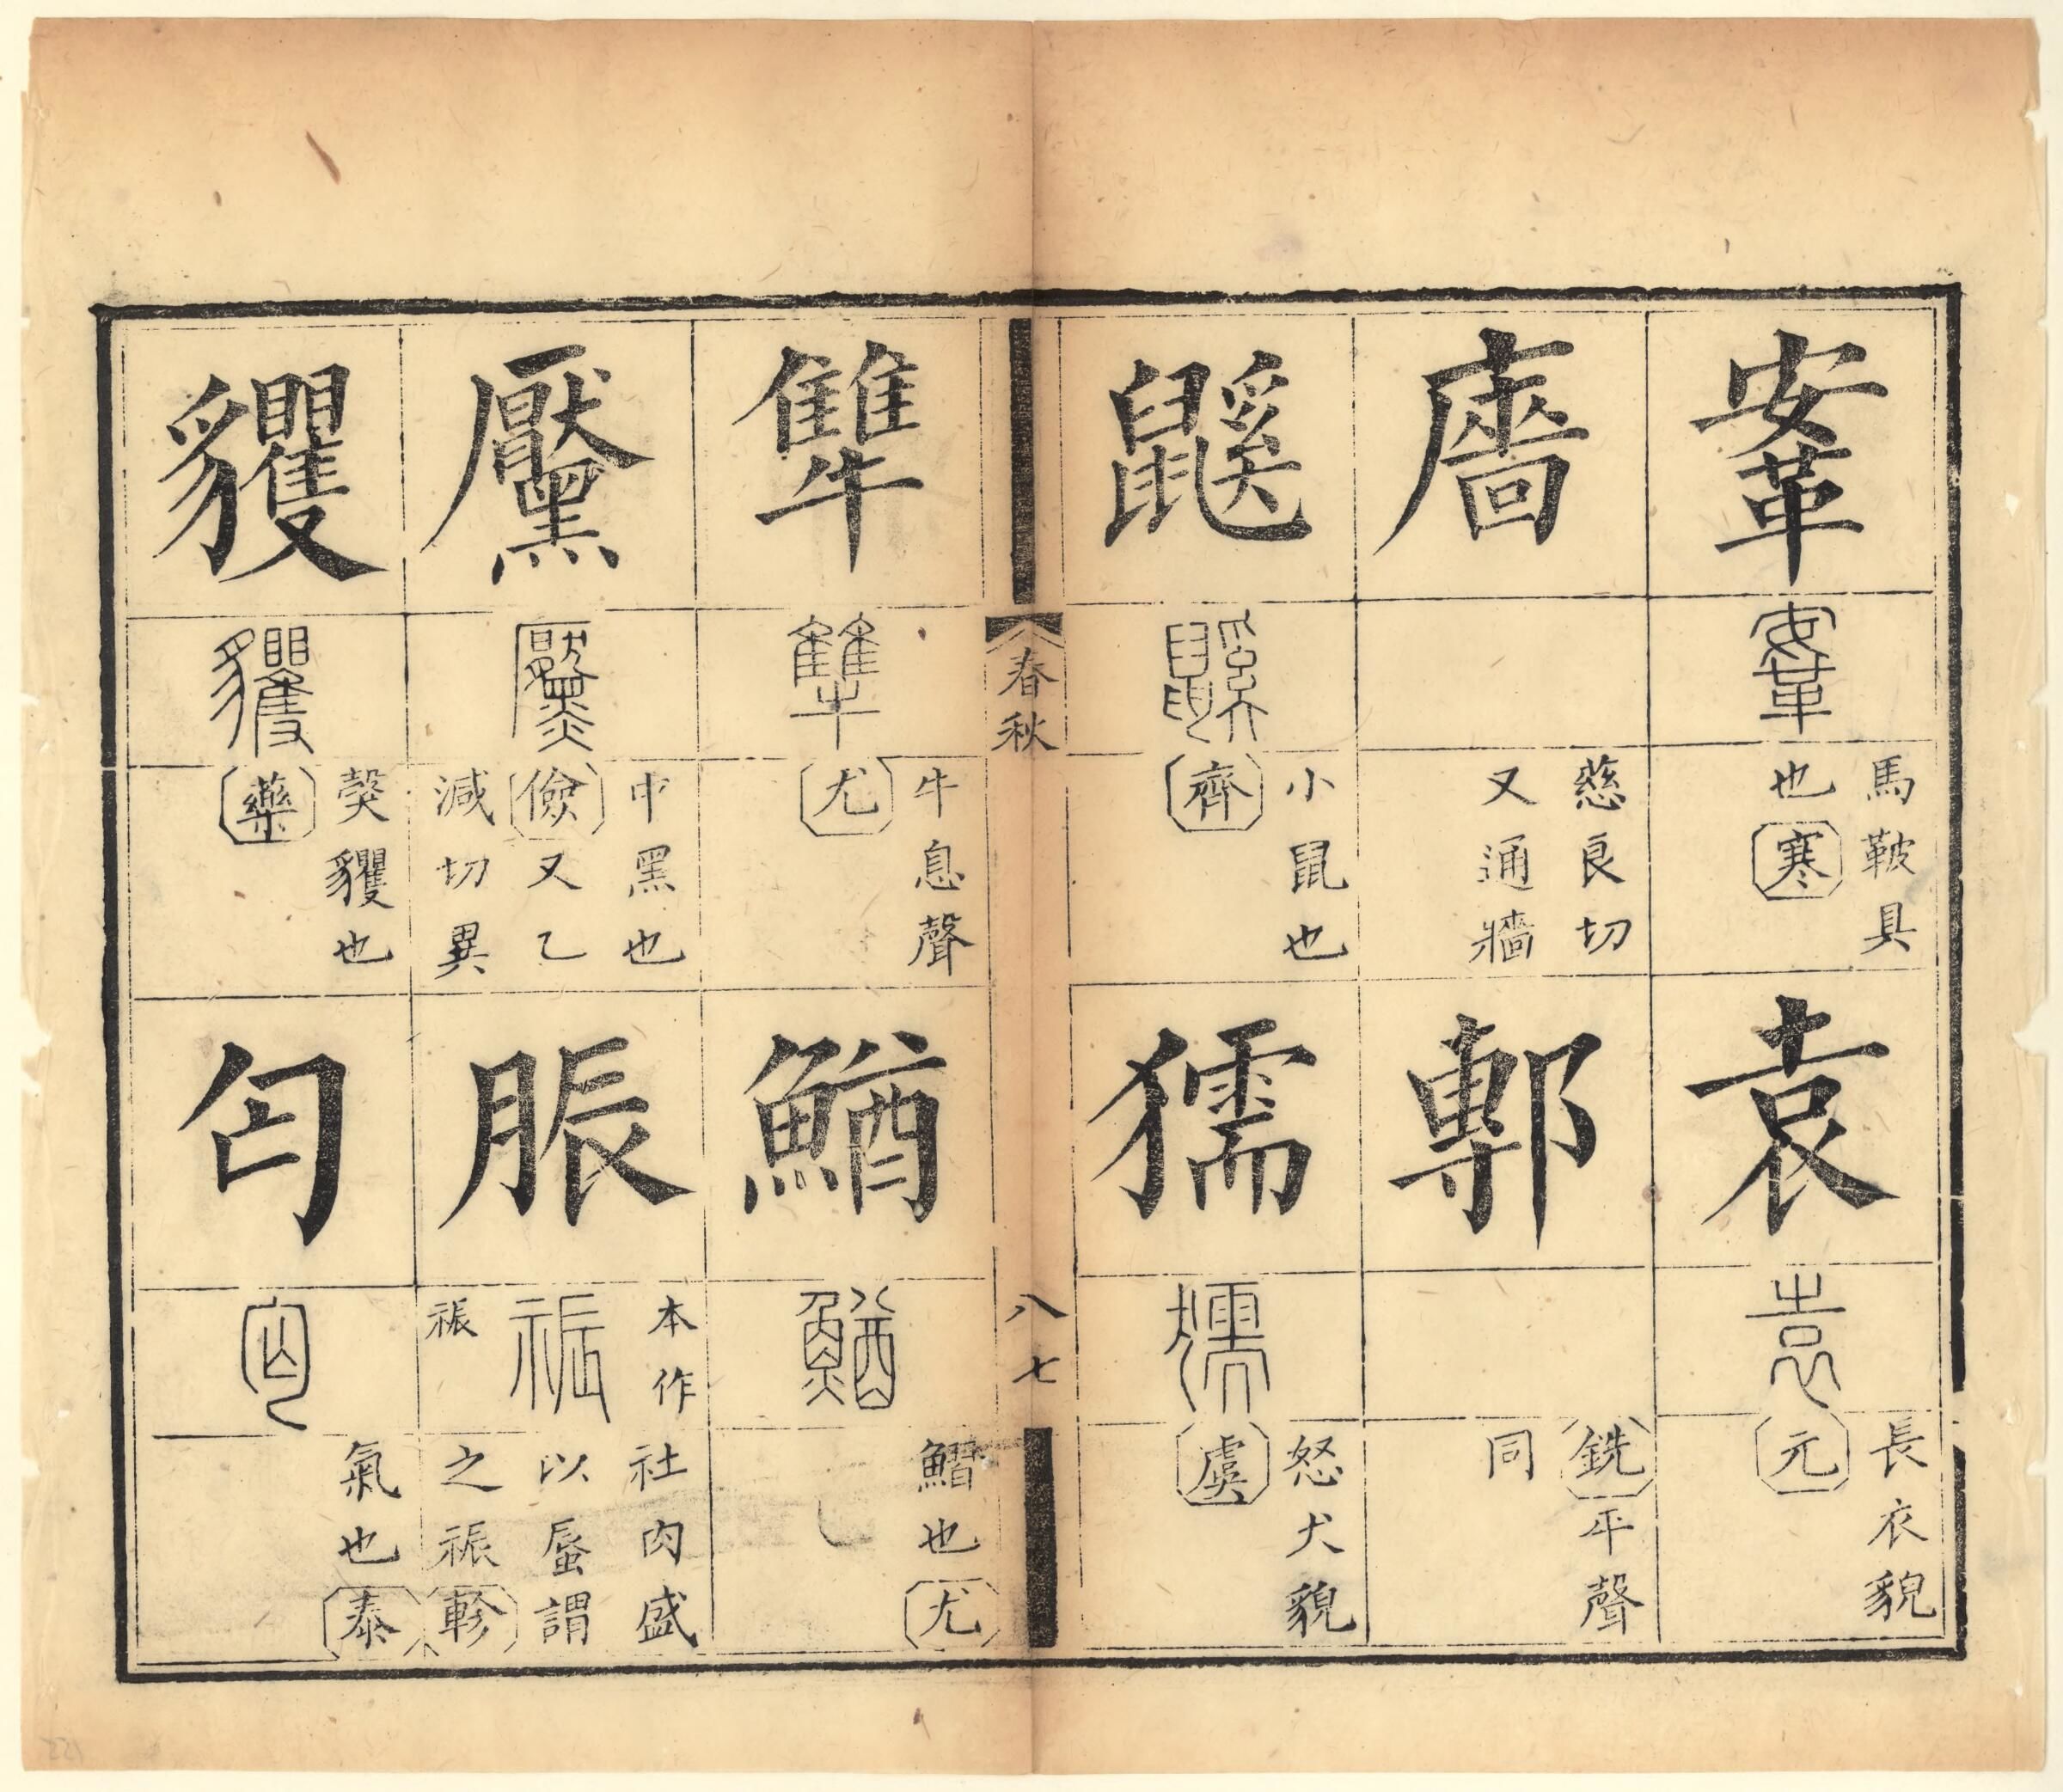 鞌
馬鞁具
也寒
袁
長衣貌
元
廧
慈良切
又通牆
鄟
銑平聲
同
鼷
小鼠也
齊
獳
怒犬貌
虞
春秋
八七
犨
牛息聲
尤
鰌
鰼也尤
黶
中黑也
儉又乙
減切異
脤
本作
祳
社肉盛
以蜃謂
之祳軫
貜
㺉貜也
藥
匄
氣也泰